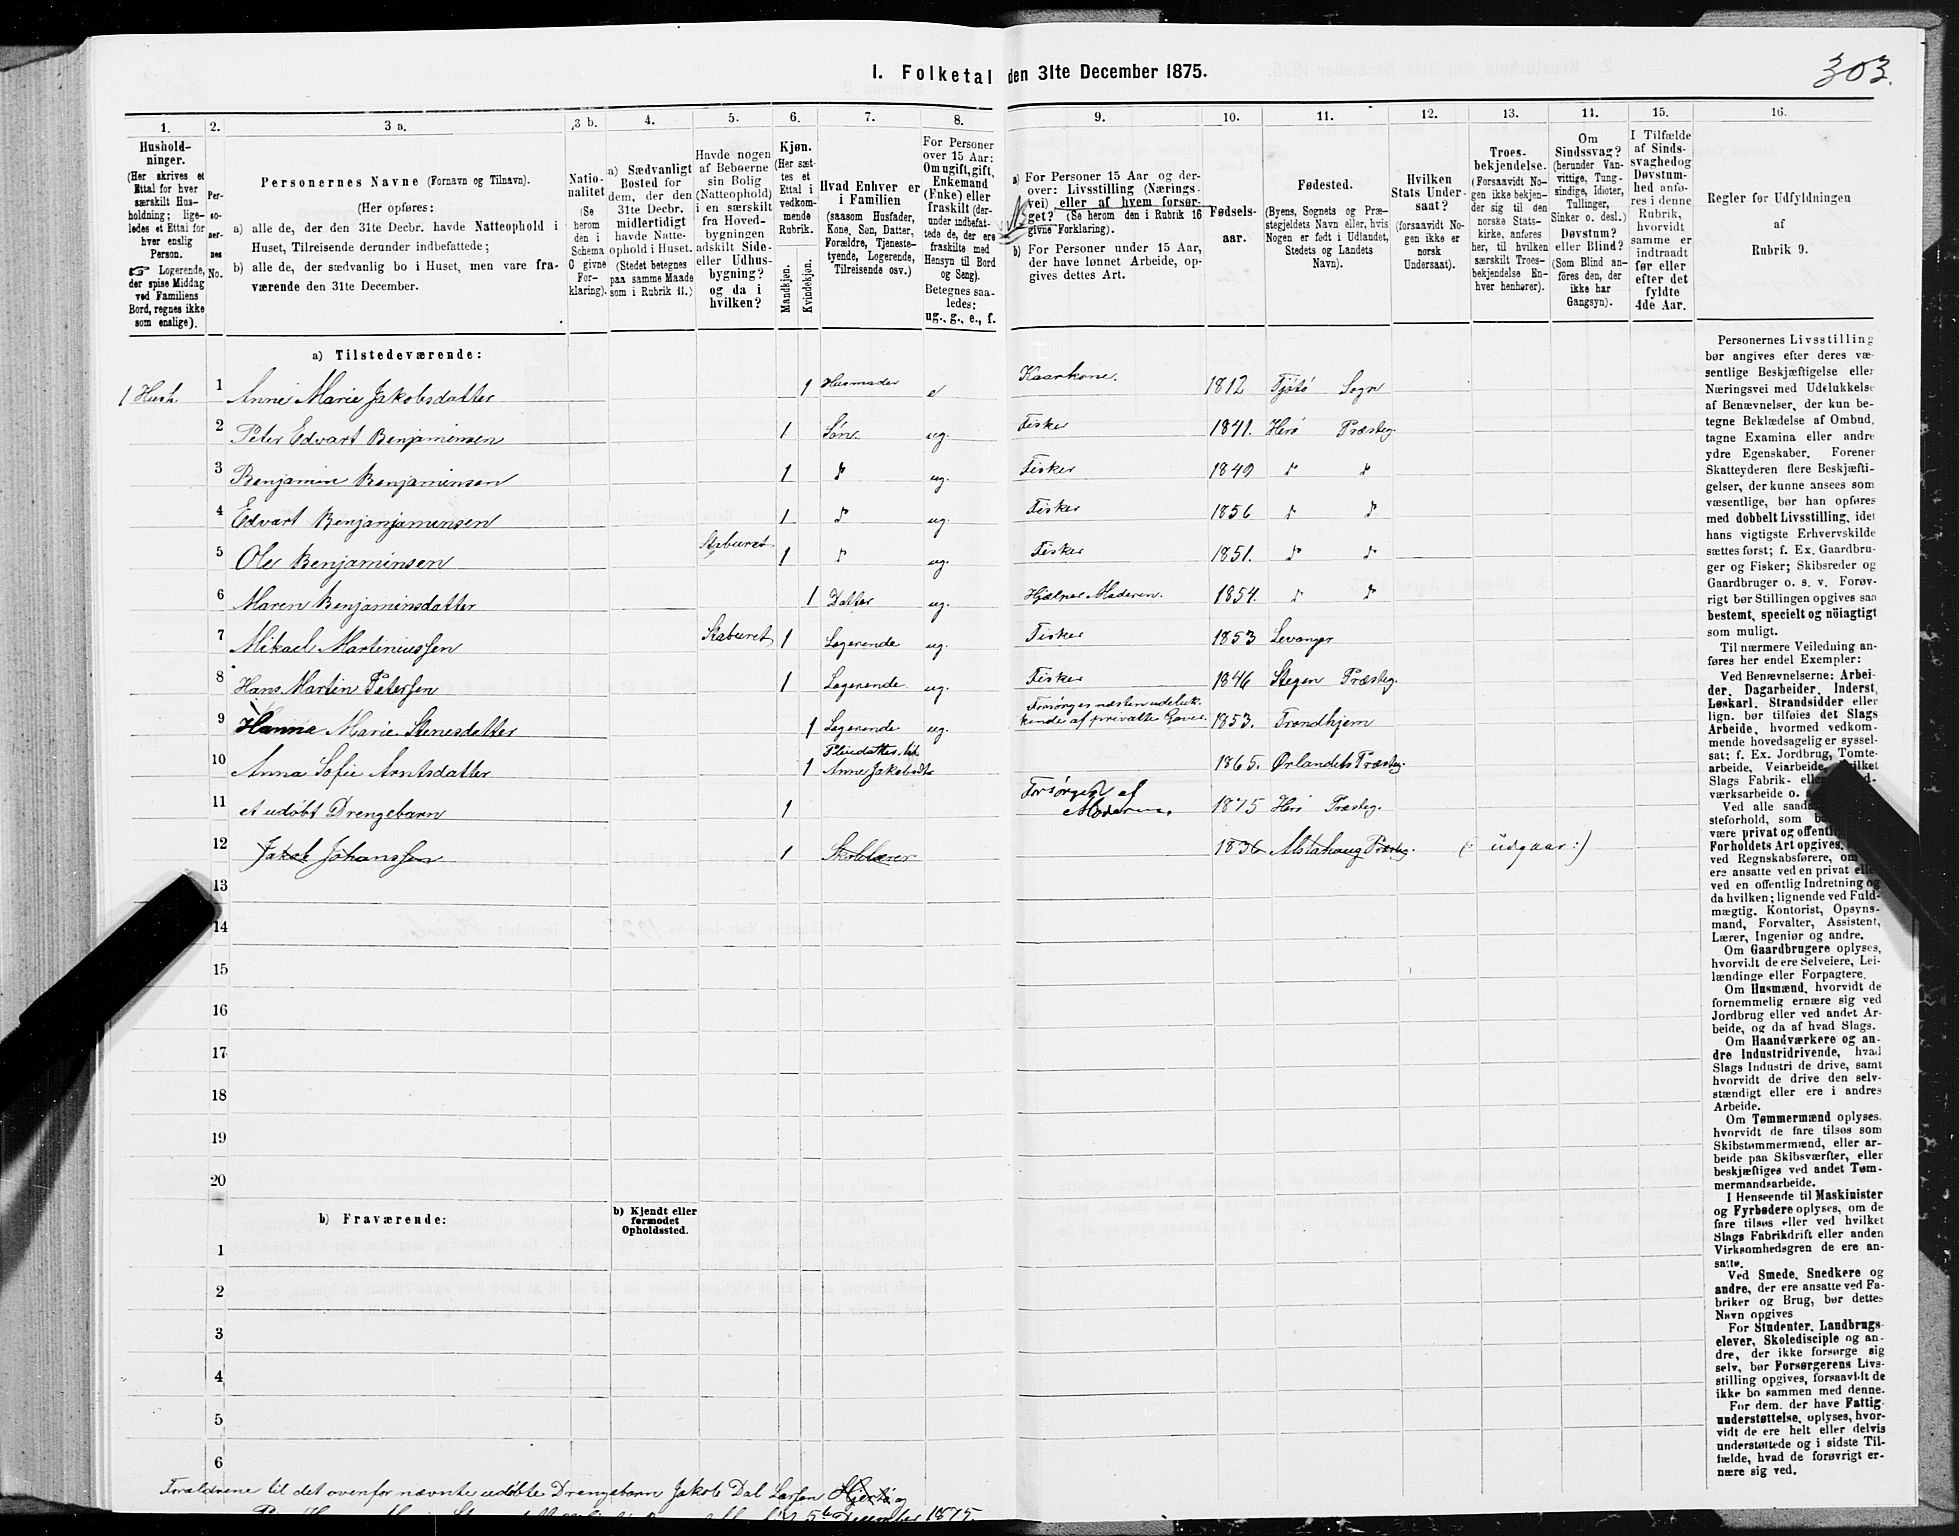 303.
I. Folketal den 31te December 1875.
1.
Hushold-
ninger.
(Her skrives et
Ettal for hver
særskilt Hus-
holdning; lige-
ledes et Ettal for
hver enslig
Person.
☞ Logerende,
der spise Middag
ved Familiens
Bord, regnes ikke
som enslige).
2.
Per-
so-
ner-
nes
No.
3 a.
Personernes Navne (Fornavn og Tilnavn).
(Her opføres:
a) alle de, der den 31te Decbr. havde Natteophold i
Huset, Tilreisende derunder indbefattede;
b) alle de, der sædvanlig bo i Huset, men vare fra-
værende den 31te December.
3 b.
Natio-
nalitet
(Se
herom
den i
Schema
C givne
For-
klaring).
4.
a) Sædvanligt
Bosted for
dem, der den
31te Decbr.
midlertidigt
havde Natte-
ophold i Huset.
(Stedet betegnes
paa samme Maade
som i Rubrik 11.)
5.
Havde nogen
af Beboerne
sin Bolig
(Natteophold)
i en særskilt
fra Hoved-
bygningen
adskilt Side-
eller Udhus-
bygning?
og da i
hvilken?
6.
Kjøn.
(Her sæt-
tes et
Ettal i
vedkom-
mende
Rubrik.
Mandkjøn.
Kvindekjøn.
7.
Hvad Enhver er
i Familien
(saasom Husfader,
Kone, Søn, Datter,
Forældre, Tjeneste-
tyende, Logerende,
Tilreisende osv.)
8.
For Personer
over 15 Aar:
Om ugift, gift,
Enkemand
(Enke) eller
fraskilt (der-
under indbefat-
tede de, der ere
fraskilte med
Hensyn til Bord
og Seng).
Betegnes saa-
ledes:
ug., g., e., f.
9.
a) For Personer 15 Aar og der-
over: Livsstilling (Nærings-
vei) eller af hvem forsør-
get? (Se herom den i Rubrik 16
givne Forklaring).
b) For Personer under 15 Aar,
der have lønnet Arbeide, op-
gives dettes Art.
10.
Fødsels-
aar.
11.
Fødested.
(Byens, Sognets og Præ-
stegjeldets Navn eller, hvis
Nogen er født i Udlandet,
Stedets og Landets
Navn).
12.
Hvilken
Stats Under-
saat?
(forsaavidt No-
gen ikke er
norsk
Undersaat).
13.
Troes-
bekjendelse.
(Forsaavidt No-
gen ikke bekjen-
der sig til den
norske Stats-
kirke, anføres
her, til hvilken
særskilt Troes-
bekjendelse En-
hver henhører).
14.
Om
Sindssvag?
(herunder Van-
vittige, Tung-
sindige, Idioter,
Tullinger,
Sinker o. desl.)
Døvstum?
eller Blind?
(Som Blind an-
føres den, der
ikke har
Gangsyn).
15.
I Tilfælde
af Sinds-
svaghed og
Døvstum-
hed anfø-
res i denne
Rubrik,
hvorvidt
samme er
indtraadt
før eller
efter det
fyldte
4de Aar.
16.
Regler for Udfyldningen
af
Rubrik 9.
a) Tilstedeværende:
1 Hush. 1 Anne Marie Jakobsdatter 1 Husmoder e Kaarkone. 1812 Tjøtø Sogn
2 Peter Edvart Benjaminsen 1 Søn. ug. Fisker 1841. Herø Præsteg.
3 Benjamin Benjaminsen 1 " ug. Fisker 1849 " "
4 Edvart Benjanjaminsen 1 " ug. Fisker 1856 " "
5 Ole Benjaminsen Staburet 1 " ug. Fisker 1851. " "
6 Maren Benjaminsdatter 1 Datter ug. Hjælper Moderen. 1854. " "
7 Mikael Martiniussen Staburet 1 Logerende ug. Fisker 1853 Levanger
8 Hans Martin Petersen 1 Logerende ug. Fisker 1846 Stegen Præsteg.
9 Hanna Marie Stenesdatter 1 Logerende ug. Forsørges næsten udeluk-
kende af private Gaver. 1853. Trondhjem
10 Anna Sofie Arntsdatter 1 Pleiedatter til
Anne Jakobsdt 1865. Ørlandets Præsteg.
11 et udøbt Drengebarn 1 Forsørges af
Moderen. 1875 Herø Præsteg.
12 Jakob Johanssen 1 Skolelærer 1836 Alstahaug Præsteg. (: udgaar :)
13
14
15
16
17
18
19
20
b) Fraværende:
b) Kjendt eller
formodet
Opholdssted.
1
2
3
4
5
6
Personernes Livsstilling
bør angives efter deres væ-
sentlige Beskjæftigelse eller
Næringsvei med Udelukkelse
af Benævnelser, der kun be-
tegne Beklædelse af Ombud,
tagne Examina eller andre
ydre Egenskaber. Forener
Skatteyderen flere Beskjæfti-
gelser, der kunne ansees som
væsentlige, bør han opføres
med dobbelt Livsstilling, idet
hans vigtigste Erhvervskilde
sættes først; f. Ex. Gaardbru-
ger og Fisker; Skibsreder og
Gaardbruger o. s. v. Forøv-
rigt bør Stillingen opgives saa
bestemt, specielt og nöiagtigt
som muligt.
Til nærmere Veiledning an-
føres her endel Exempler:
Ved Benævnelserne: Arbei-
der, Dagarbeider, Inderst,
Løskarl, Strandsidder eller
lign. bør tilføies det Slags
Arbeide, hvormed vedkom-
mende hovedsagelig er syssel-
sat; f. Ex. Jordbrug, Tomte-
arbeide, Veiarbeide, hvilket
Slags Fabrik-
værksarbeide o.
Ved alle
steforhold, som
være privat og offentlig
Forholdets Art opgives.
ved Regnskabsførere, om
ere ansatte ved en privat eller
ved en offentlig Indretning og
da hvilken; lignende ved Fuld-
mægtig, Kontorist, Opsyns-
mand, Forvalter, Assistent,
Lærer, Ingeniør og andre.
Om Gaardbrugere oplyses,
hvorvidt de ere Selveiere, Lei-
lændinge eller Forpagtere.
Om Husmænd, hvorvidt de
fornemmelig ernære sig ved
Jordbrug eller ved andet Ar-
beide, og da af hvad Slags.
Om Haandværkere og an-
dre Industridrivende, hvad
Slags Industri de drive, samt
hvorvidt de drive den selv-
stændigt eller ere i andres
Arbeide.
Om Tømmermænd oplyses,
hvorvidt de fare tilsøs som
Skibstømmermænd, eller ar-
beide paa Skibsværfter, eller
beskjæftiges ved andet Tøm-
mermandsarbeide.
I Henseende til Maskinister
og Fyrbødere oplyses, om de
fare tilsøs eller ved hvilket
Slags Fabrikdrift eller anden
Virksomhedsgren de ere an-
satte.
Ved Smede, Snedkere og
andre, der ere ansatte ved Fa-
briker og Brug, bør dettes
Navn opgives
For Studenter, Landbrugs-
elever, Skoledisciple og an-
dre, der ikke forsørge sig
selv, bør Forsørgerens Livs-
stilling opgives, forsaavidt de
ikke bo sammen med denne.
For dem, der have Fattig-
understøttelse, oplyses, hvor-
vidt de ere helt eller delvis
understøttede og i sidste Til-
fælde, hvad de forøvrigt er-
nære sig ved.
Forældrene til det ovenfor nævnte udøbte Drengebarn Jakob Dal Larsen og
December 1875.